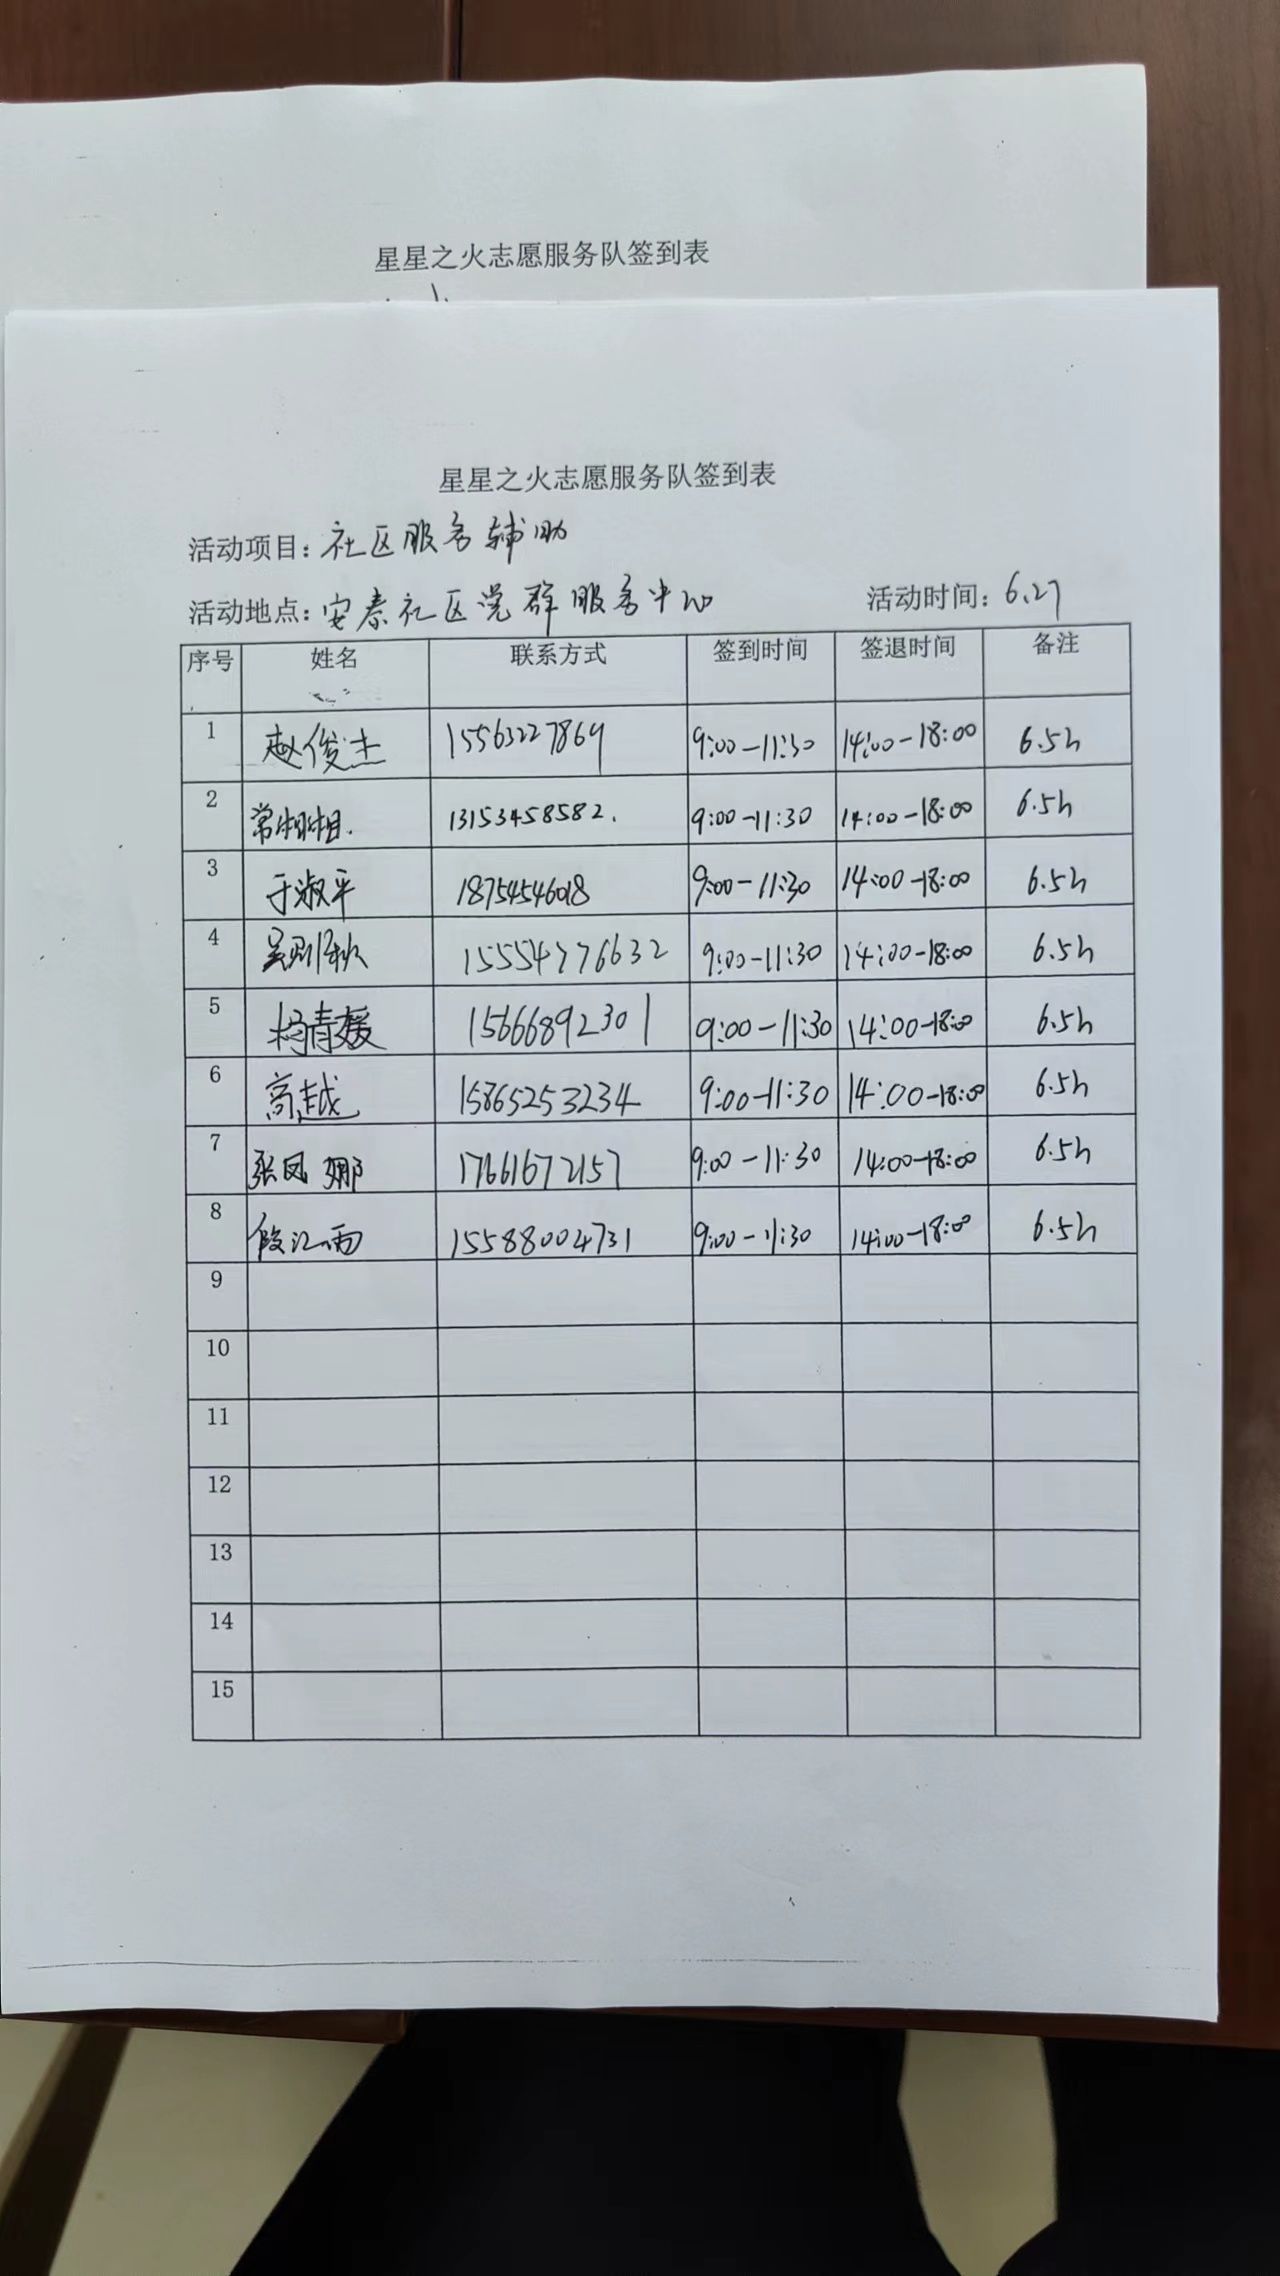 星星之火志愿服务队签到表
星星之火志愿服务队签到表
活动项目：社区服务辅助
活动地点：安泰社区党群服务中心 活动时间：6.27
序号 姓名 联系方式 签到时间 签退时间 备注
1 赵俊杰 15563227869 9:00-11:30 14:00-18:00 6.5h
2 常相相. 13153458582. 9:00-11:30 14:00-18:00 6.5h
3 于淑平 18754546018 9:00-11:30 14:00-18:00 6.5h
4 15554776632 9:00-11:30 14:00-18:00 6.5h
5 杨青媛 15666892301 9:00-11:30 14:00-18:00 6.5h
6 高越 15865253234 9:00-11:30 14:00-18:00 6.5h
7 张凤娜 17661672157 9:00-11:30 14:00-18:00 6.5h
8 段江雨 15588004731 9:00-11:30 14:00-18:00 6.5h
9
10
11
12
13
14
15